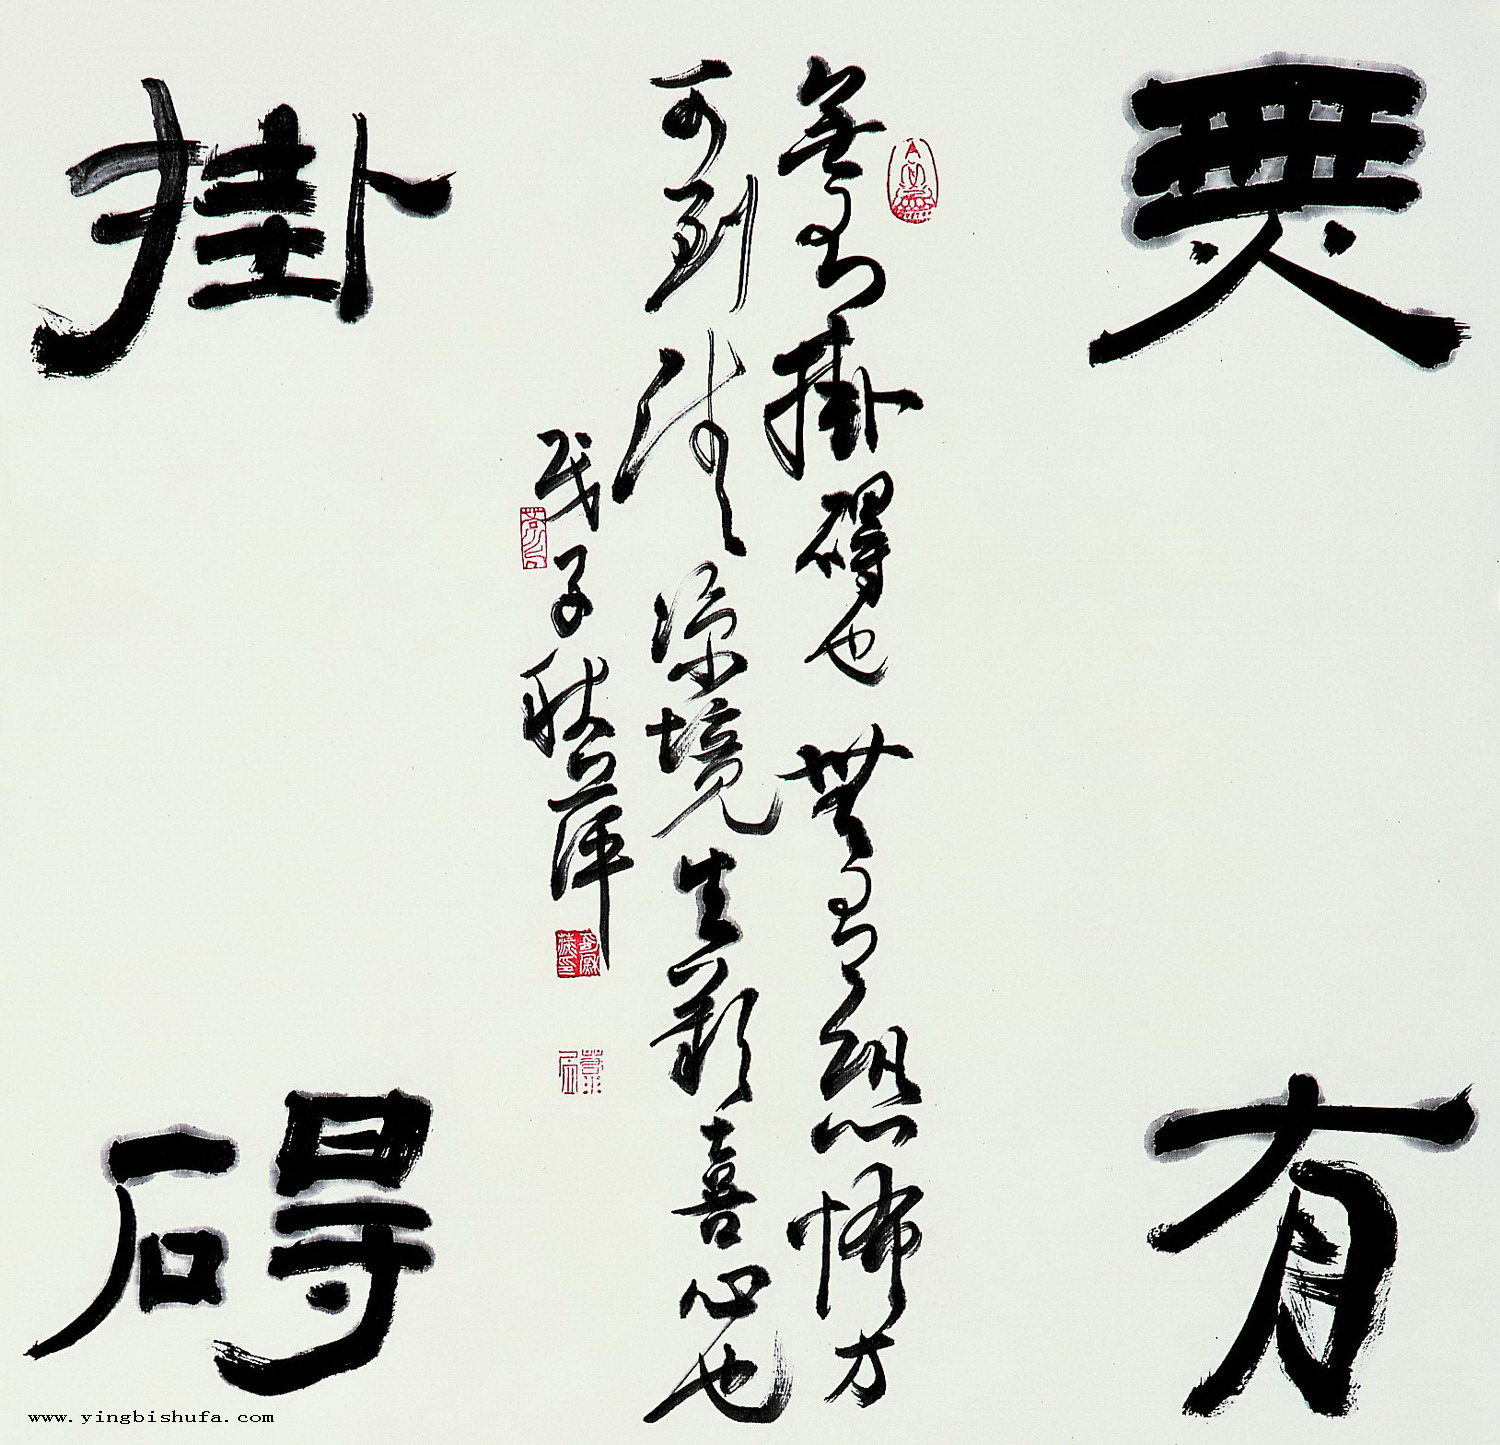 無有
無有掛碍也無有恐怖方
可到清凉境生歡喜心也
戊子秋萍
掛碍
www.yingbishufa.com